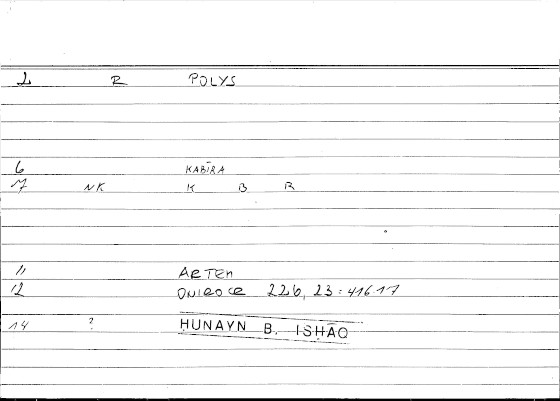 2 R POLYS
6 KABĪRA
7 NK K B R
11 ARTEM
12 ONIROCR 226, 23 : 416 17
14 ? ḤUNAYN B. ISḤĀQ